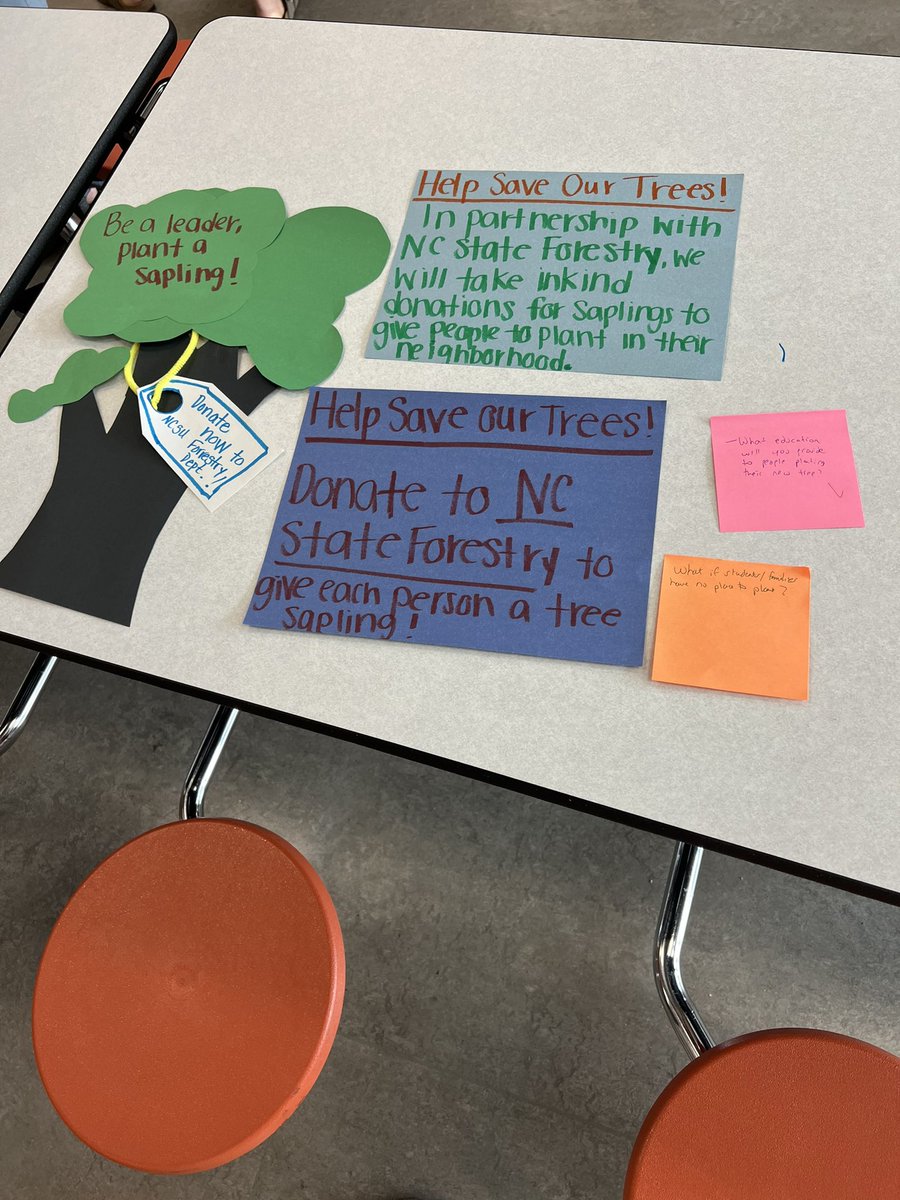 Be a leader,
plant a
sapling!
Donate
now to
NCSU Forestry
Dept.!!
Help Save Our Trees!
In partnership with
NC State Forestry, we
will take inkind
donations for saplings to
give people to plant in their
neighborhood.
Help Save our Trees!
Donate to NC
State Forestry to
give each person a tree
sapling!
- What education
will you provide
to people planting
their new tree?
What if students/families
have no place to plant?